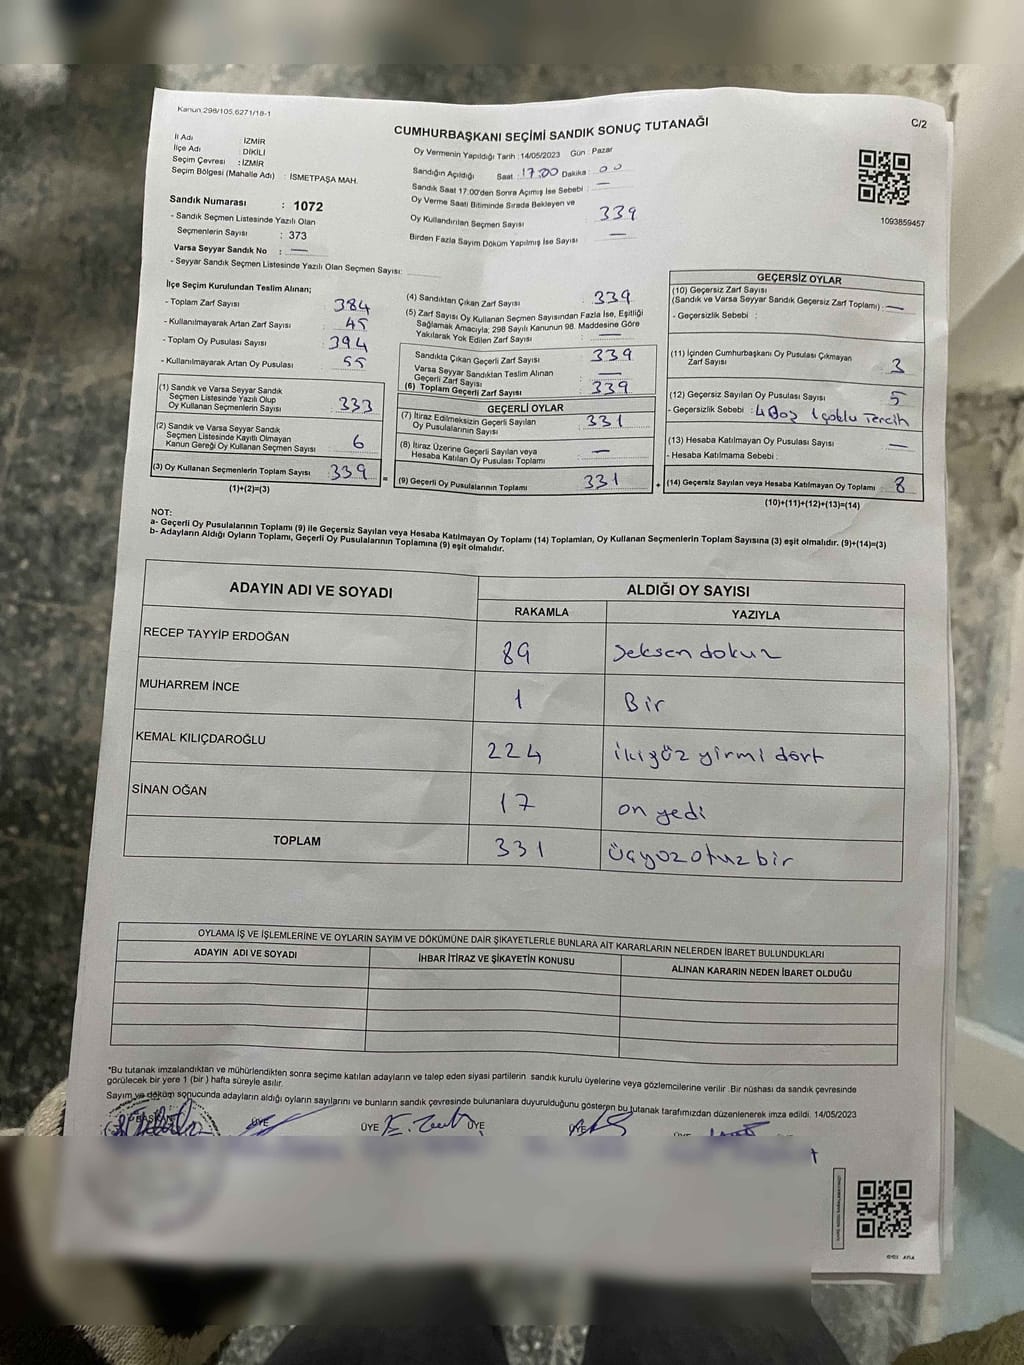 Kanun 298/105,6271/18-1
CUMHURBAŞKANI SEÇİMİ SANDIK SONUÇ TUTANAĞI
C/2
İl Adı : İZMİR
İlçe Adı : DİKİLİ
Seçim Çevresi : İZMİR
Seçim Bölgesi (Mahalle Adı) : İSMETPAŞA MAH.
Sandık Numarası : 1072
- Sandık Seçmen Listesinde Yazılı Olan
Seçmenlerin Sayısı : 373
Varsa Seyyar Sandık No : —
- Seyyar Sandık Seçmen Listesinde Yazılı Olan Seçmen Sayısı:
Oy Vermenin Yapıldığı Tarih :14/05/2023 Gün : Pazar
Sandığın Açıldığı Saat : 17:00 Dakika : 00
Sandık Saat 17.00'den Sonra Açımış İse Sebebi : —
Oy Verme Saati Bitiminde Sırada Bekleyen ve
Oy Kullandırılan Seçmen Sayısı : 339
Birden Fazla Sayım Döküm Yapılmış İse Sayısı : —
1093859457
İlçe Seçim Kurulundan Teslim Alınan;
- Toplam Zarf Sayısı : 384
- Kullanılmayarak Artan Zarf Sayısı : 45
- Toplam Oy Pusulası Sayısı : 394
- Kullanılmayarak Artan Oy Pusulası : 55
(1) Sandık ve Varsa Seyyar Sandık
Seçmen Listesinde Yazılı Olup
Oy Kullanan Seçmenlerin Sayısı : 333
(2) Sandık ve Varsa Seyyar Sandık
Seçmen Listesinde Kayıtlı Olmayan
Kanun Gereği Oy Kullanan Seçmen Sayısı : 6
(3) Oy Kullanan Seçmenlerin Toplam Sayısı : 339
(1)+(2)=(3)
=
(4) Sandıktan Çıkan Zarf Sayısı : 339
(5) Zarf Sayısı Oy Kullanan Seçmen Sayısından Fazla İse, Eşitliği
Sağlamak Amacıyla; 298 Sayılı Kanunun 98. Maddesine Göre
Yakılarak Yok Edilen Zarf Sayısı : —
Sandıkta Çıkan Geçerli Zarf Sayısı : 339
Varsa Seyyar Sandıktan Teslim Alınan
Geçerli Zarf Sayısı : —
(6) Toplam Geçerli Zarf Sayısı : 339
GEÇERLİ OYLAR
(7) İtiraz Edilmeksizin Geçerli Sayılan
Oy Pusulalarının Sayısı : 331
(8) İtiraz Üzerine Geçerli Sayılan veya
Hesaba Katılan Oy Pusulası Toplamı : —
(9) Geçerli Oy Pusulalarının Toplamı : 331
+
GEÇERSİZ OYLAR
(10) Geçersiz Zarf Sayısı
(Sandık ve Varsa Seyyar Sandık Geçersiz Zarf Toplamı) : —
- Geçersizlik Sebebi :
(11) İçinden Cumhurbaşkanı Oy Pusulası Çıkmayan
Zarf Sayısı : 3
(12) Geçersiz Sayılan Oy Pusulası Sayısı : 5
- Geçersizlik Sebebi : 4 Boş 1 çoklu Tercih
(13) Hesaba Katılmayan Oy Pusulası Sayısı : —
- Hesaba Katılmama Sebebi :
(14) Geçersiz Sayılan veya Hesaba Katılmayan Oy Toplamı : 8
(10)+(11)+(12)+(13)=(14)
NOT:
a- Geçerli Oy Pusulalarının Toplamı (9) ile Geçersiz Sayılan veya Hesaba Katılmayan Oy Toplamı (14) Toplamları, Oy Kullanan Seçmenlerin Toplam Sayısına (3) eşit olmalıdır. (9)+(14)=(3)
b- Adayların Aldığı Oyların Toplamı, Geçerli Oy Pusulalarının Toplamına (9) eşit olmalıdır.
ADAYIN ADI VE SOYADI
ALDIĞI OY SAYISI
RAKAMLA YAZIYLA
RECEP TAYYİP ERDOĞAN 89 seksen dokuz
MUHARREM İNCE 1 Bir
KEMAL KILIÇDAROĞLU 224 ikiyüz yirmi dört
SİNAN OĞAN 17 on yedi
TOPLAM 331 üçyüz otuz bir
OYLAMA İŞ VE İŞLEMLERİNE VE OYLARIN SAYIM VE DÖKÜMÜNE DAİR ŞİKAYETLERLE BUNLARA AİT KARARLARIN NELERDEN İBARET BULUNDUKLARI
ADAYIN ADI VE SOYADI İHBAR İTİRAZ VE ŞİKAYETİN KONUSU ALINAN KARARIN NEDEN İBARET OLDUĞU
*Bu tutanak imzalandıktan ve mühürlendikten sonra seçime katılan adayların ve talep eden siyasi partilerin sandık kurulu üyelerine veya gözlemcilerine verilir .Bir nüshası da sandık çevresinde
görülecek bir yere 1 (bir ) hafta süreyle asılır.
Sayım ve döküm sonucunda adayların aldığı oyların sayılarını ve bunların sandık çevresinde bulunanlara duyurulduğunu gösteren bu tutanak tarafımızdan düzenlenerek imza edildi. 14/05/2023
BAŞKAN ÜYE ÜYE ÜYE ÜYE